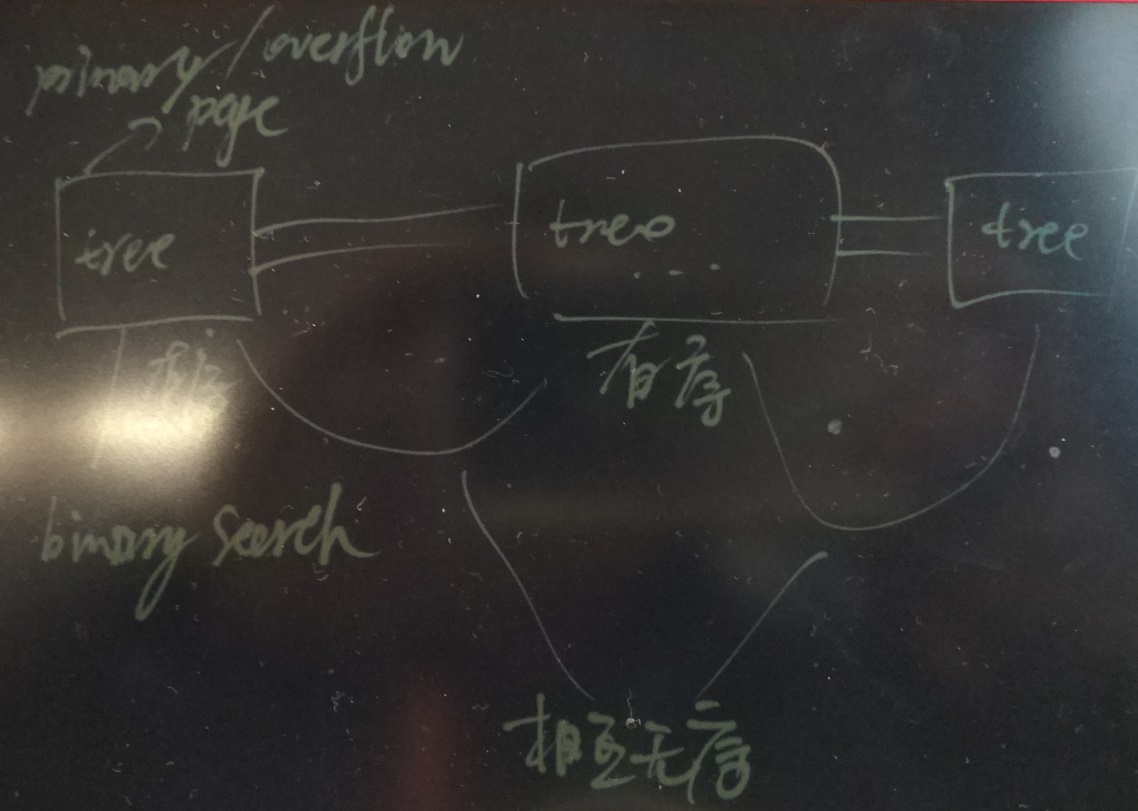 primary/overflow
page
tree
tree
...
tree
有序
binary search
相互无序